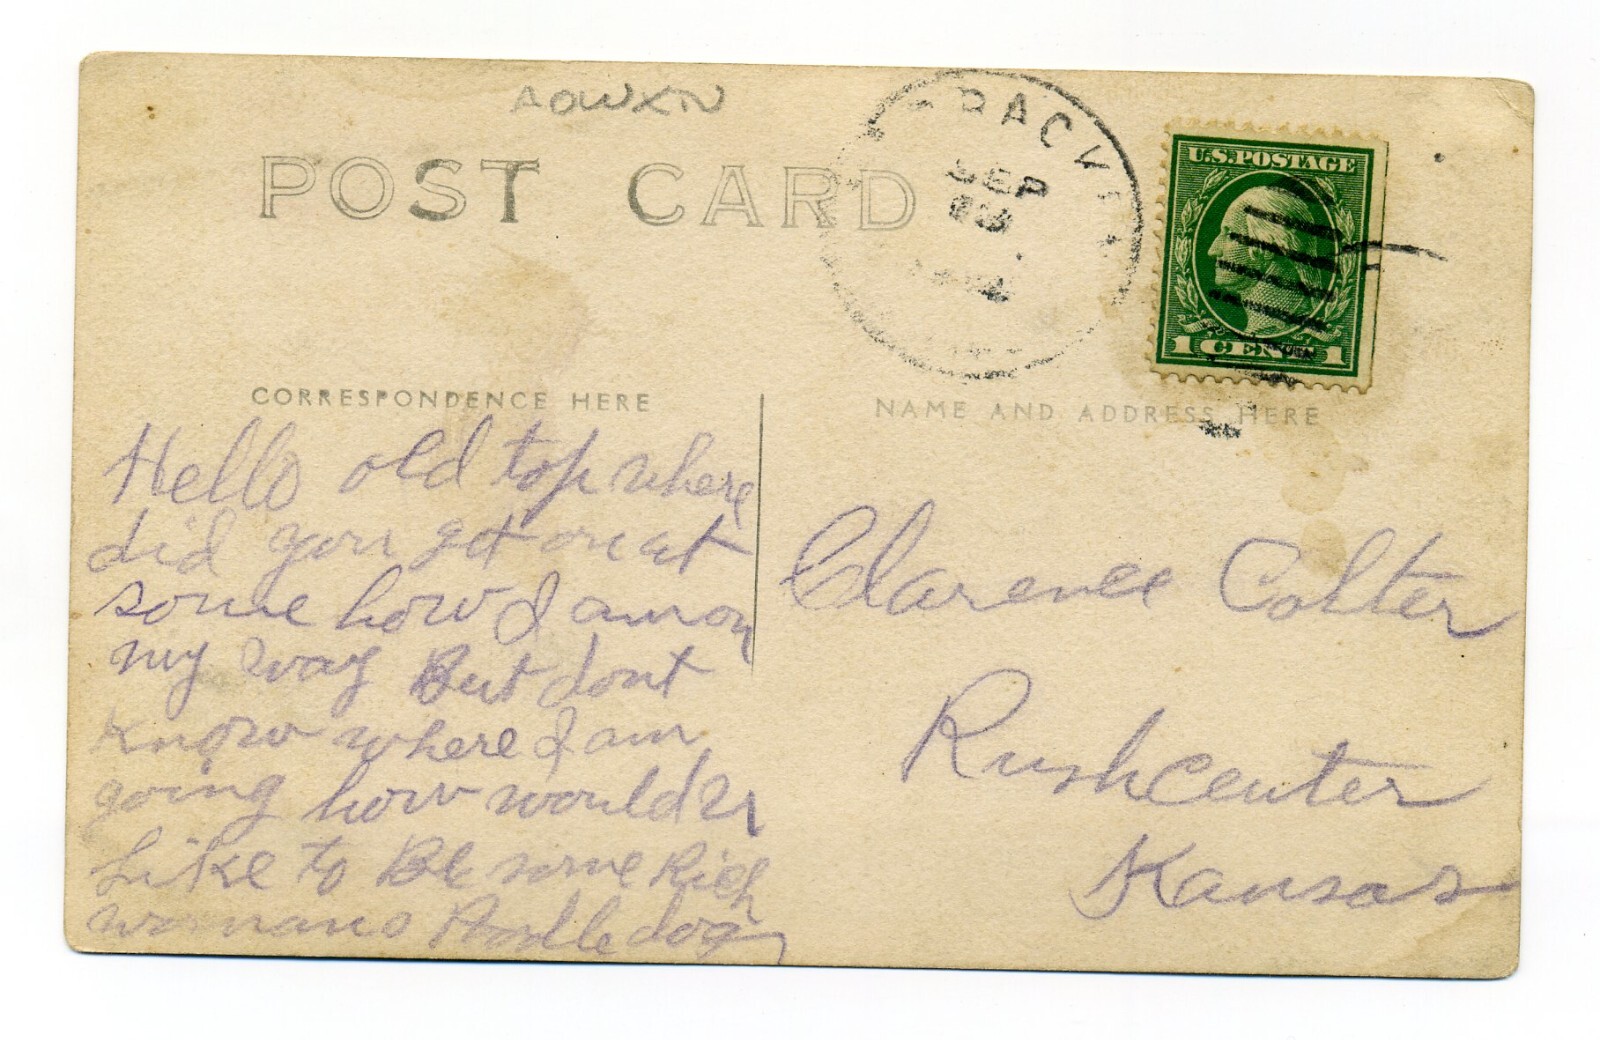 AOWXN
POST CARD
RACV
SEP
U.S. POSTAGE
1 CENT 1
CORRESPONDENCE HERE
NAME AND ADDRESS HERE
Hello old top where
did you get on at
some how I am on
my way But dont
know where I am
going how would u
Like to Be some Rich
womans Poodle dog
Clarence Colter
Rushcenter
Kansas